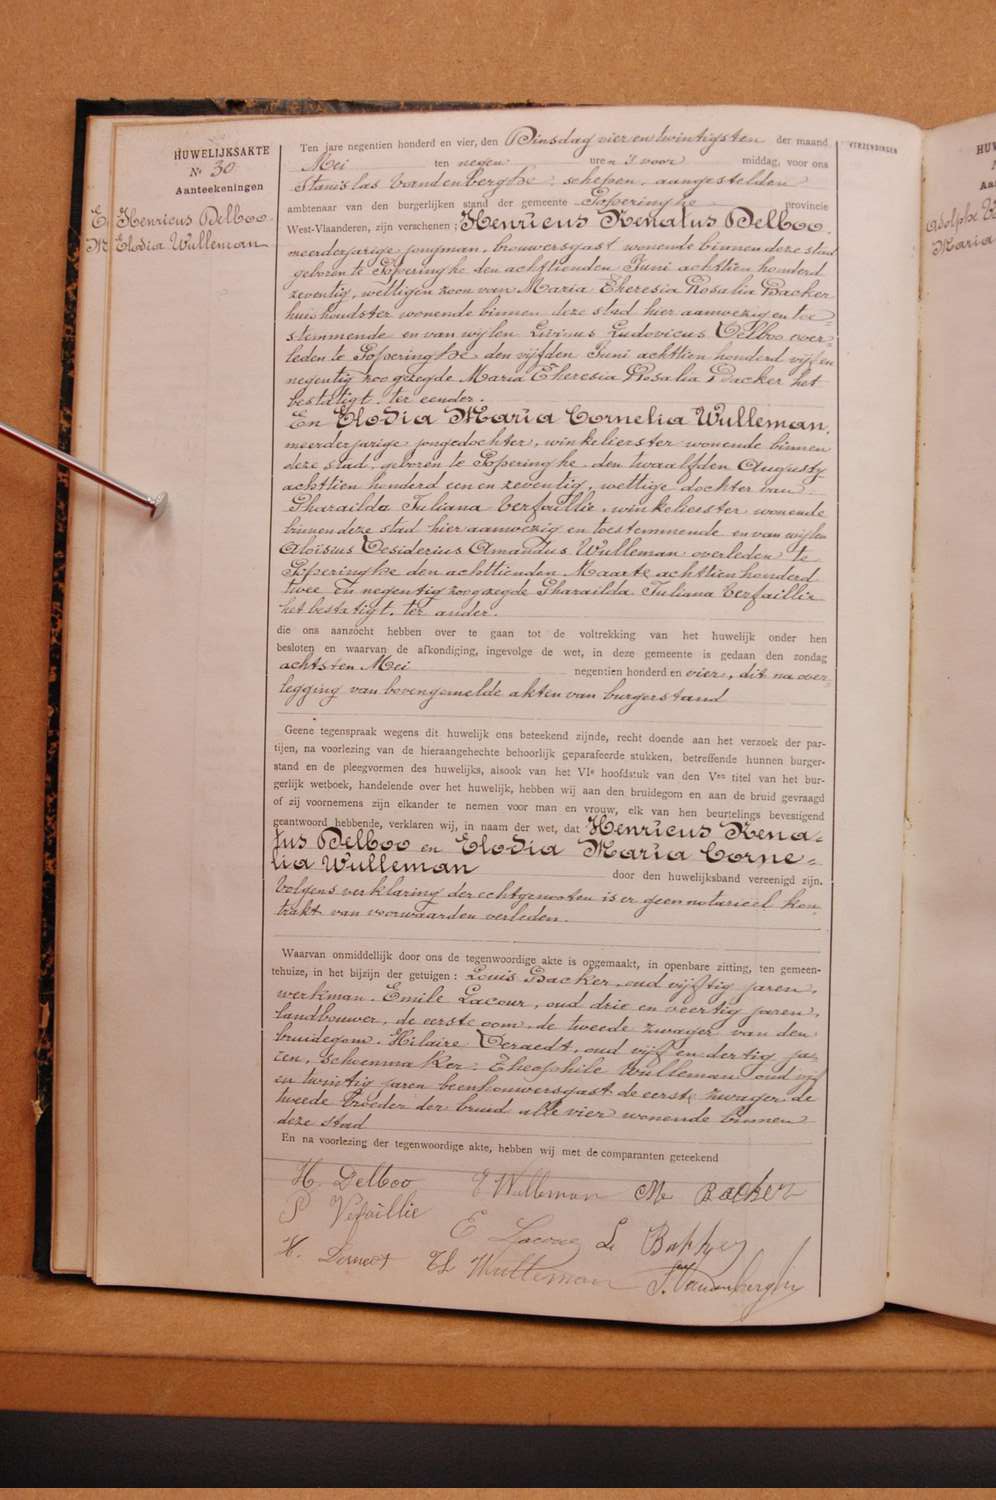 HUWELIJKSAKTE
No 30
Aanteekeningen
Henricus Delboo.
Elodia Wulleman
VERZENDINGEN
Ten jare negentien honderd en vier, den Dinsdag vier en twintigsten der maand
Mei ten negen uren voor middag, voor ons
Stanislas Vandenberghe, schepen, aangestelden
ambtenaar van den burgerlijken stand der gemeente Poperinghe provincie
West-Vlaanderen, zijn verschenen : Henricus Renatus Delboo.
meerderjarige jongman, brouwersgast wonende binnen deze stad
geboren te Poperinghe den achttienden Juni achttien honderd
zeventig, wettigen zoon van Maria Theresia Rosalia Backer
huishoudster wonende binnen deze stad hier aanwezig en toe=
stemmende en van wijlen Livinus Ludovicus Delboo over=
leden te Poperinghe den vijfden Juni achttien honderd vijf en
negentig zoo gezegde Maria Theresia Rosalia Backer het
bestatigt. ter eender.
En Elodia Maria Cornelia Wulleman.
meerderjarige jongedochter, winkelierster wonende binnen
deze stad, geboren te Poperinghe den twaalfden Augusty
achttien honderd een en zeventig, wettige dochter van
Pharaïlda Juliana Verfaillie, winkelierster wonende
binnen deze stad hier aanwezig en toestemmende en van wijlen
Aloïsius Desiderius Amandus Wulleman overleden te
Poperinghe den achttienden Maarte achttien honderd
twee en negentig zoo gezegde Pharaïlda Juliana Verfaillie
het bestatigt. ter ander.
die ons aanzocht hebben over te gaan tot de voltrekking van het huwelijk onder hen
besloten en waarvan de afkondiging, ingevolge de wet, in deze gemeente is gedaan den zondag
achtsten Mei negentien honderd en vier, dit na over=
legging van bovengemelde akten van burgerstand
Geene tegenspraak wegens dit huwelijk ons beteekend zijnde, recht doende aan het verzoek der par-
tijen, na voorlezing van de hieraangehechte behoorlijk geparafeerde stukken, betreffende hunnen burger-
stand en de pleegvormen des huwelijks, alsook van het VIe hoofdstuk van den Ven titel van het bur-
gerlijk wetboek, handelende over het huwelijk, hebben wij aan den bruidegom en aan de bruid gevraagd
of zij voornemens zijn elkander te nemen voor man en vrouw, elk van hen beurtelings bevestigend
geantwoord hebbende, verklaren wij, in naam der wet, dat Henricus Rena=
tus Delboo en Elodia Maria Corne=
lia Wulleman door den huwelijksband vereenigd zijn.
Volgens verklaring der echtgenooten is er geen notarieel kon=
trakt van voorwaarden verleden.
Waarvan onmiddellijk door ons de tegenwoordige akte is opgemaakt, in openbare zitting, ten gemeen-
tehuize, in het bijzijn der getuigen : Louis Backer, oud vijftig jaren,
werkman, Emile Lacour, oud drie en veertig jaren,
landbouwer, de eerste oom, de tweede zwager van den
bruidegom. Hilaire Deraedt, oud vijf en dertig ja=
ren, schoenmaker. Theophile Wulleman oud vijf
en twintig jaren beenhouwersgast de eerste zwager de
tweede broeder der bruid alle vier wonende binnen
deze stad
En na voorlezing der tegenwoordige akte, hebben wij met de comparanten geteekend
H. Delboo E Wulleman M Backer
P Vefaillie E Lacour L Bakker
H. Th Wulleman S. Vandenberghe